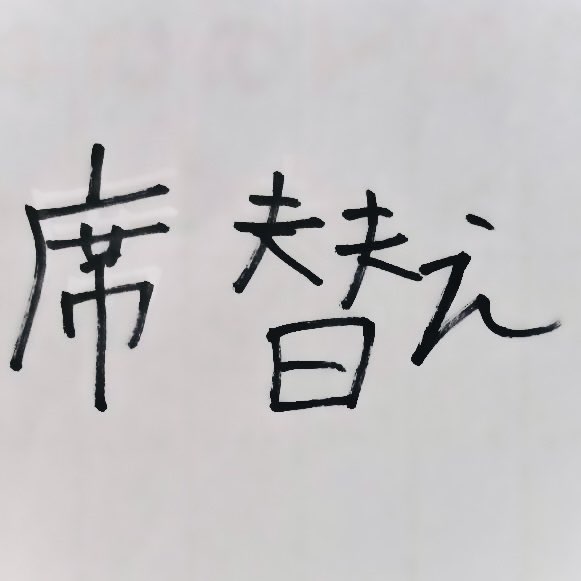 席替え